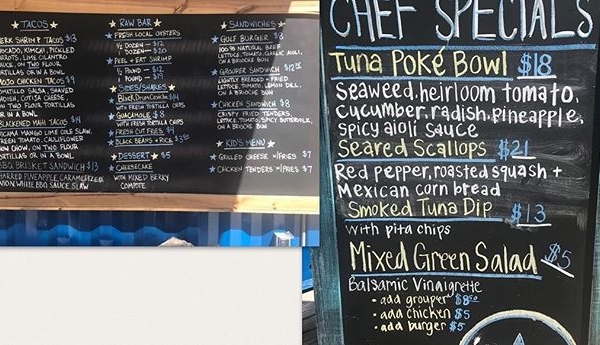 TACOS
SHRIMP TACOS $13
KIMCHI, PICKLED
LIME CILANTRO
SAUCE, ON TWO FLOUR
TORTILLAS OR IN A BOWL
CHICKEN TACOS $9
TOMATILLO SALSA, SHAVED
RADISH, COTIJA CHEESE,
FLOUR TORTILLAS
OR IN A BOWL
BLACKENED MAHI TACOS $14
JICAMA MANGO LIME COLE SLAW,
GREEN TOMATO, CAULIFLOWER
CHOW CHOW, ON TWO FLOUR
TORTILLAS OR IN A BOWL
BBQ BRISKET SANDWICH $13
CHARRED PINEAPPLE, CARAMELIZED
ONION, WHITE BBQ SAUCE, SLAW
RAW BAR
FRESH LOCAL OYSTERS
½ DOZEN - $12
DOZEN - $20
PEEL + EAT SHRIMP
½ POUND - $12
POUND - $19
SIDES/SHARES
WITH FRESH TORTILLA CHIPS
GUACAMOLE $8
WITH FRESH TORTILLA CHIPS
FRESH CUT FRIES $4
BLACK BEANS + RICE
DESSERT $5
CHEESECAKE
WITH MIXED BERRY
COMPOTE
SANDWICHES
GOLF BURGER $13
100% NATURAL BEEF
LETTUCE, TOMATO, GARLIC AIOLI,
ON A BRIOCHE BUN
GROUPER SANDWICH
LIGHTLY BREADED + FRIED
LETTUCE, TOMATO, LEMON DILL,
ON A BRIOCHE BUN
CHICKEN SANDWICH $8
CRISPY FRIED TENDERS,
LETTUCE, TOMATO, SPICY BUTTERMILK,
ON A BRIOCHE BUN
KID'S MENU
GRILLED CHEESE W/FRIES $7
CHICKEN TENDERS W/FRIES $7
CHEF SPECIALS
Tuna Poké Bowl $18
Seaweed, heirloom tomato,
cucumber, radish, pineapple,
spicy aioli sauce
Seared Scallops $21
Red pepper, roasted squash +
Mexican corn bread
Smoked Tuna Dip $13
with pita chips
Mixed Green Salad $5
Balsamic Vinaigrette
• add grouper $8
• add chicken $5
• add burger $5